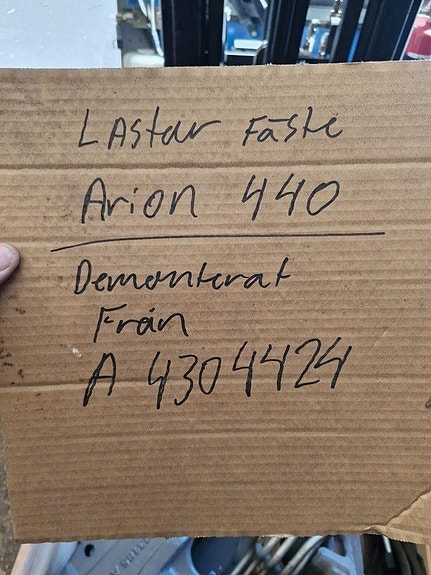 LAstar Fäste
Arion 440
Demonterat
Från
A 4304424